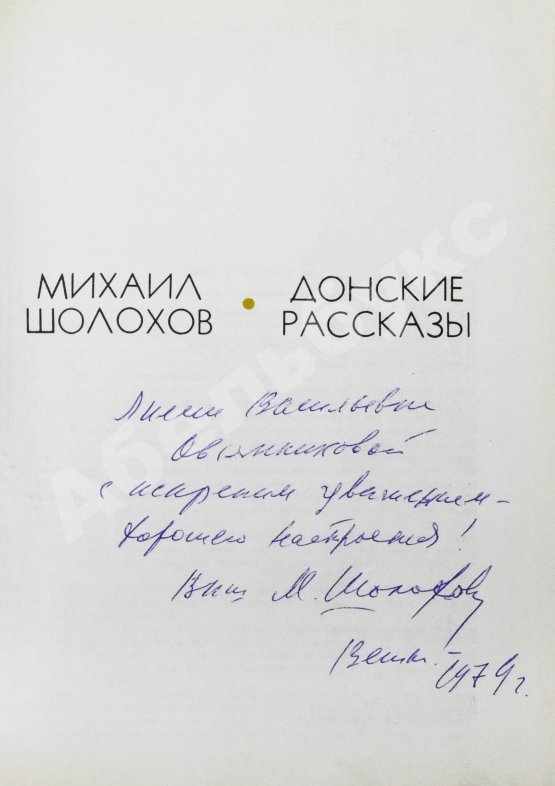 МИХАИЛ
ШОЛОХОВ
•
ДОНСКИЕ
РАССКАЗЫ
Лилии Васильевне
Овсянниковой
с искреним уважением -
хорошего настроения!
Ваш М. Шолохов
Вешк. - 1979 г.
Абельбукс